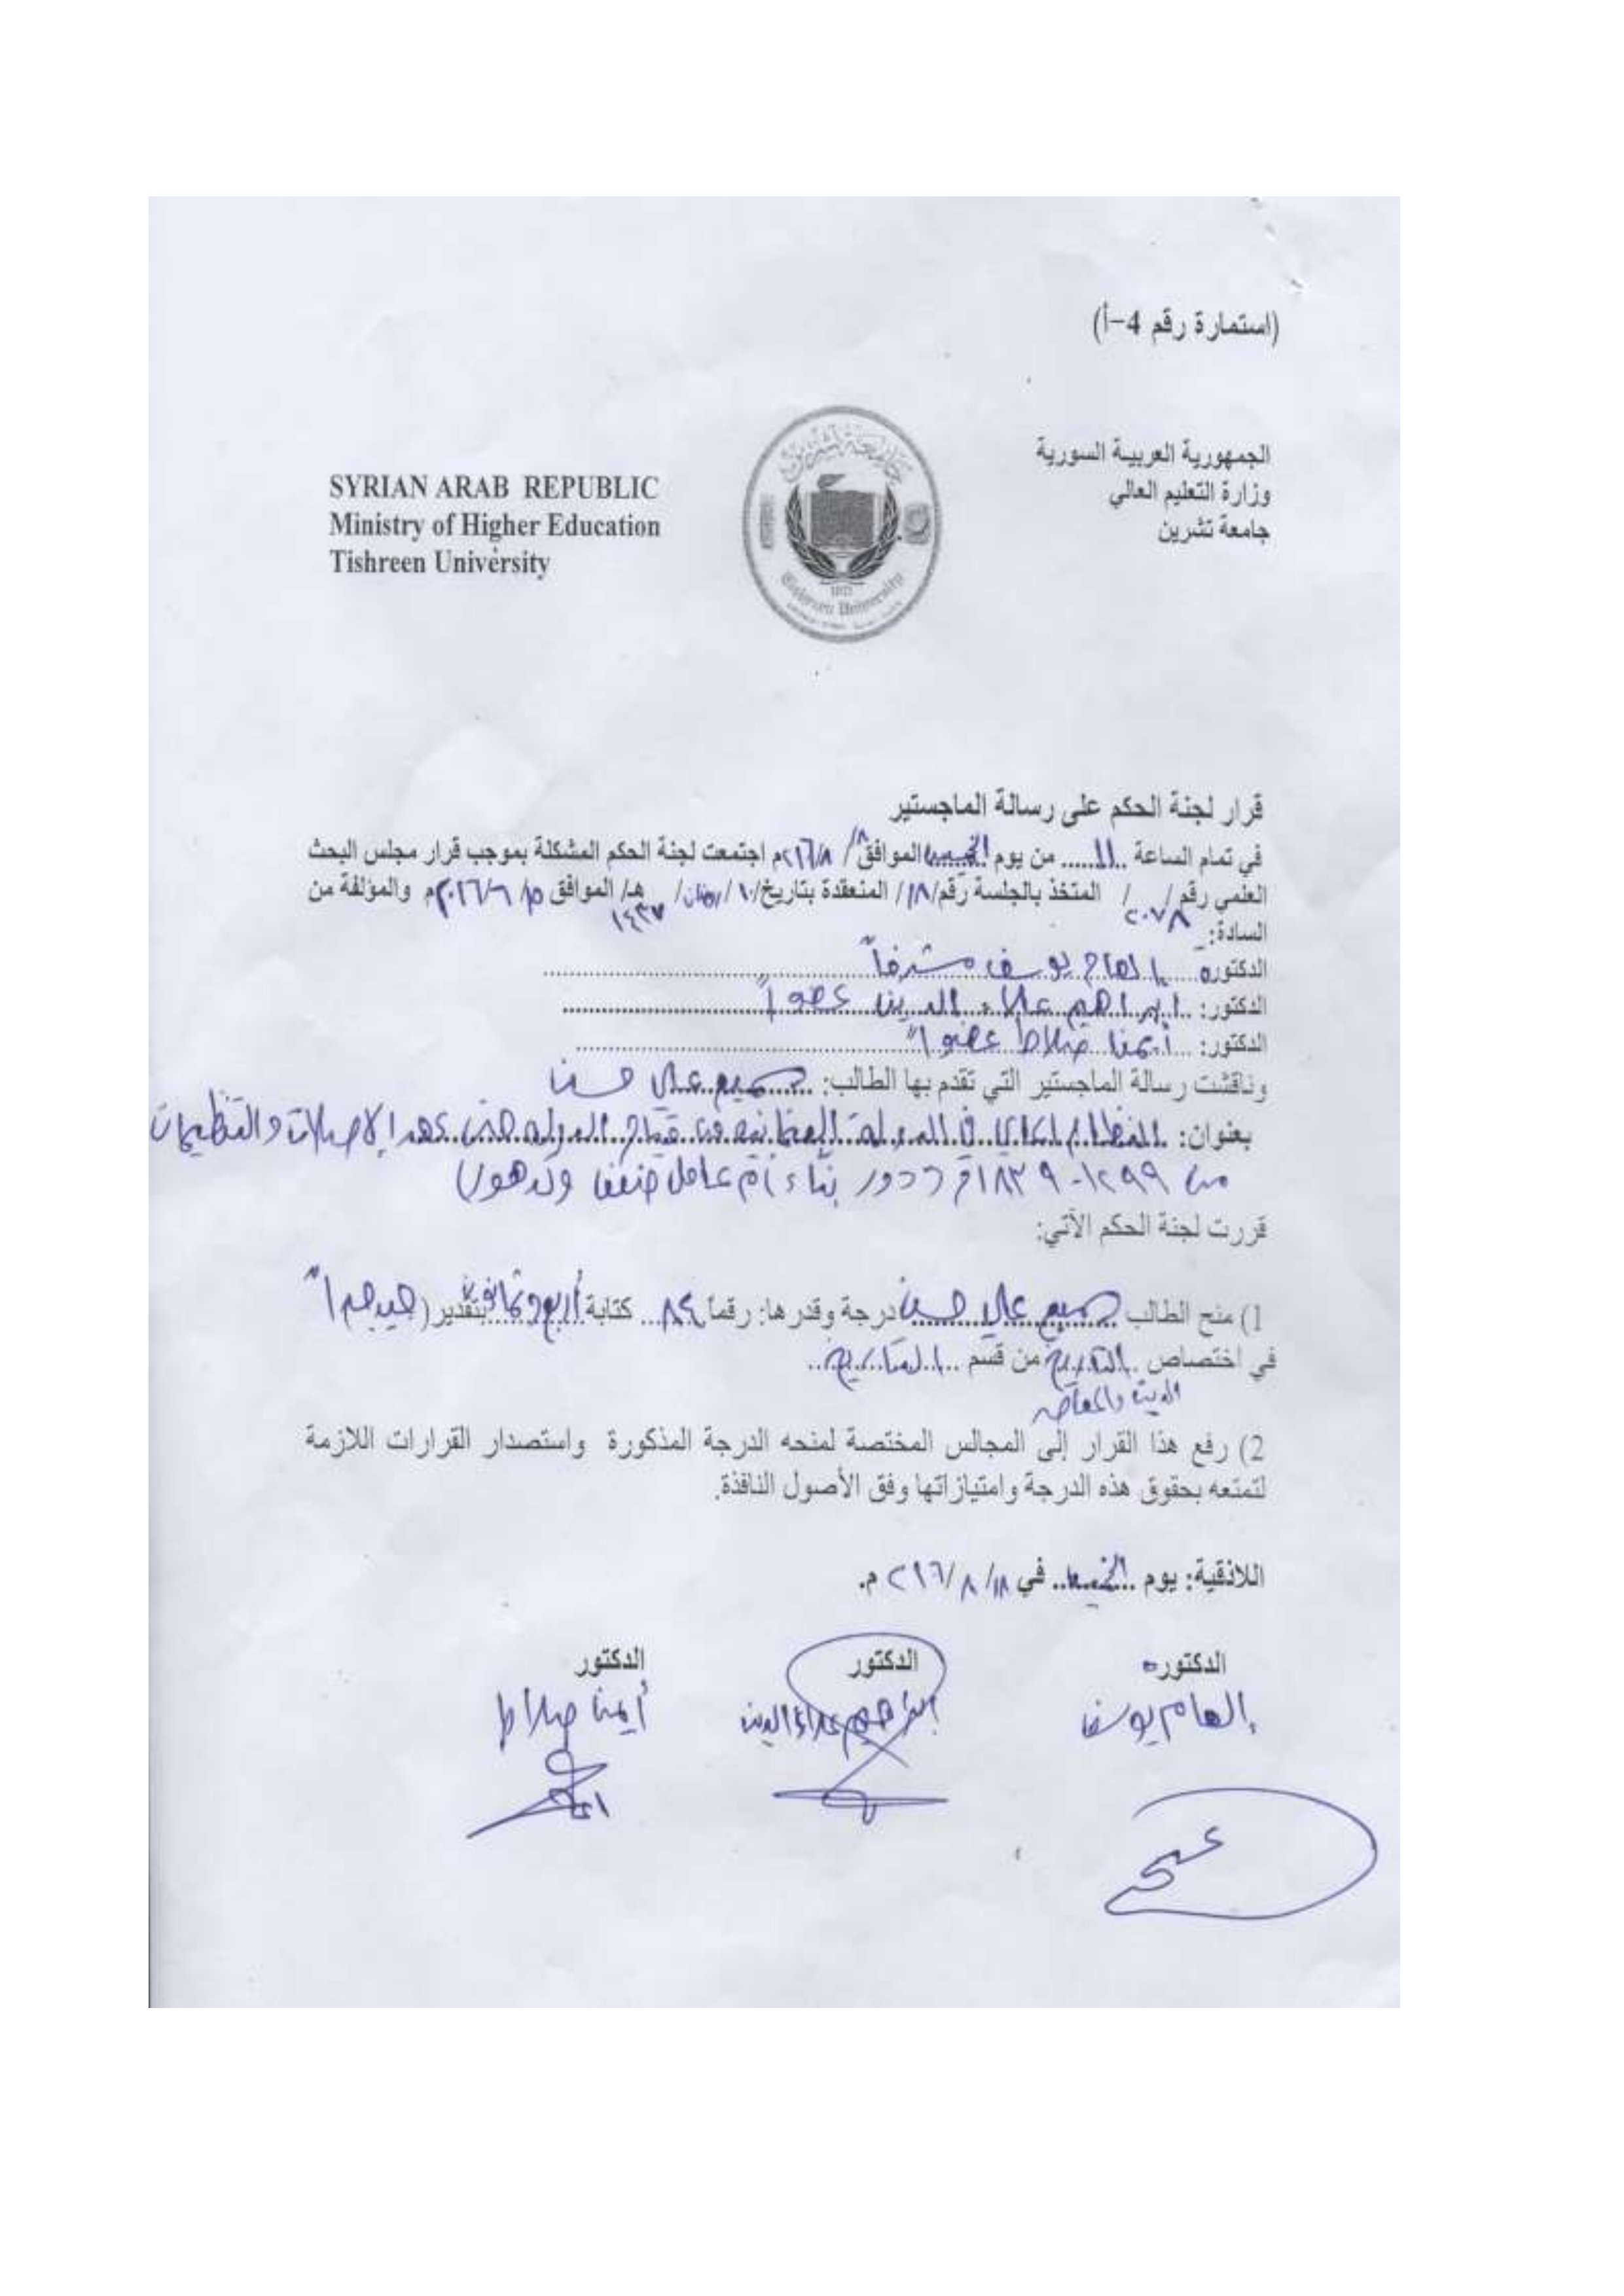 (استمارة رقم 4-أ)
الجمهورية العربية السورية
وزارة التعليم العالي
جامعة تشرين
SYRIAN ARAB REPUBLIC
Ministry of Higher Education
Tishreen University
جامعة تشرين
Tishreen University
قرار لجنة الحكم على رسالة الماجستير
في تمام الساعة ..١١..... من يوم الخميس الموافق ١٨/ ٨/ ٢٠١٦م اجتمعت لجنة الحكم المشكلة بموجب قرار مجلس البحث
العلمي رقم / ٢٠٧٨ / المتخذ بالجلسة رقم/١٨/ المنعقدة بتاريخ/١٠/رمضان/ ١٤٣٧ هـ/ الموافق ١٥/ ٦/ ٢٠١٦م والمؤلفة من
السادة:
الدكتورة إلهام يوسف مشرفاً
الدكتور: ابراهيم علاء الدين عضواً
الدكتور: أيمن صلاط عضواً
وناقشت رسالة الماجستير التي تقدم بها الطالب: علي حسن
بعنوان: النظام في الدولة العثمانية من قيام الدولة حتى عهد الإصلاحات والتنظيمات
من ١٢٩٩-١٨٣٩م دور بنّاء أم عامل ضعف وتدهور
قررت لجنة الحكم الآتي:
1) منح الطالب علي حسن درجة وقدرها: رقماً ٨٤ كتابة أربع وثمانون بتقدير (جيد جداً)
في اختصاص التاريخ من قسم التاريخ
الحديث والمعاصر
2) رفع هذا القرار إلى المجالس المختصة لمنحه الدرجة المذكورة واستصدار القرارات اللازمة
لتمتعه بحقوق هذه الدرجة وامتيازاتها وفق الأصول النافذة.
اللاذقية: يوم الخميس في ١٨/ ٨ /٢٠١٦ م.
الدكتورة الدكتور الدكتور
إلهام يوسف ابراهيم علاء الدين أيمن صلاط